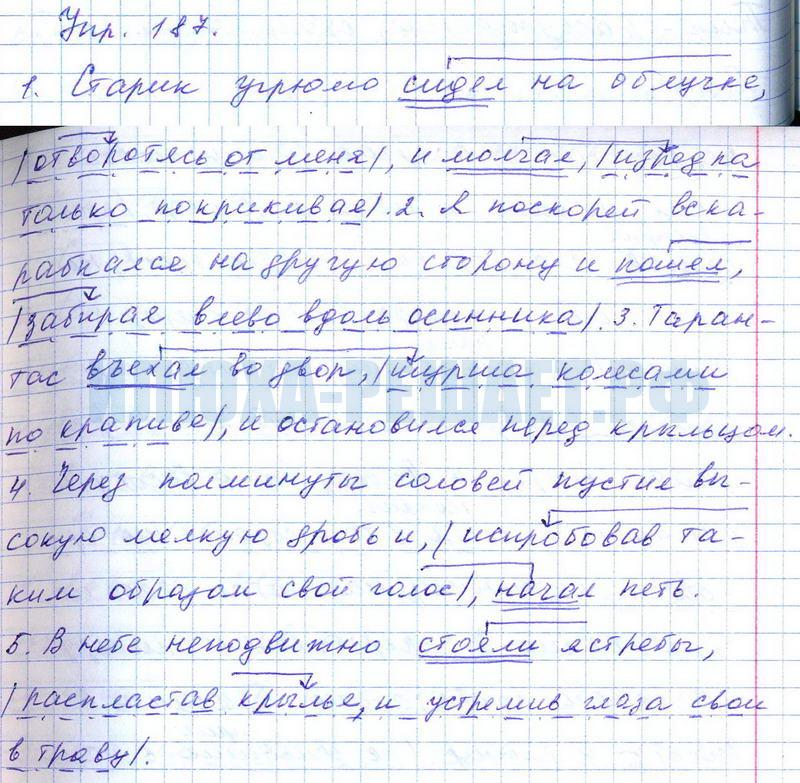 Упр. 187.
1. Старик угрюмо сидел на облучке,
/отворотясь от меня/, и молчал, /изредка
только покрикивая/. 2. Я поскорей вска-
рабкался на другую сторону и пошел,
/забирая влево вдоль осинника/. 3. Таран-
тас въехал во двор, /шурша колесами
по крапиве/, и остановился перед крыльцом.
4. Через полминуты соловей пустил вы-
сокую мелкую дробь и, /испробовав та-
ким образом свой голос/, начал петь.
5. В небе неподвижно стояли ястребы,
/распластав крылья, и устремив глаза свои
в траву/.